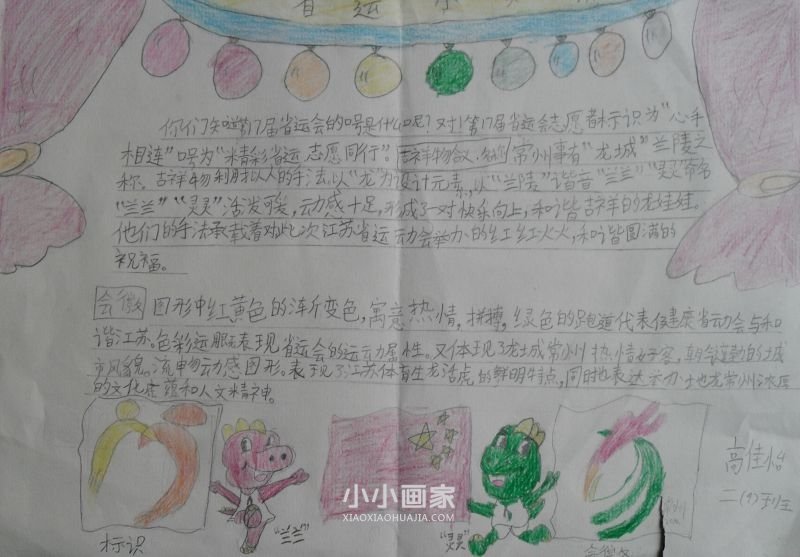 省运小
你们知道第17届省运会的口号是什么呢？对！第17届省运会志愿者标识为“心手
相连”口号为“精彩省运 志愿同行”。吉祥物含义：常州事有“龙城”“兰陵之
称。吉祥物利用拟人的手法，以“龙”为设计元素，以“兰陵”谐音“兰兰”“灵灵”命名
“兰兰”“灵灵”活发可爱，动感十足，形成了一对快乐向上，和谐吉祥的龙娃娃。
他们的手法承载着对此次江苏省运动会举办的红红火火，和谐圆满的
祝福。
会徽 图形中红黄色的渐变色，寓意热情，拼搏，绿色的跑道代表健康省运动会与和
谐江苏。色彩运服表现省运会的运动属性。又体现了龙城常州热情好客，朝气蓬勃的城
市风貌。流申物动感图形。表现了江苏体育生龙活虎的鲜明特点，同时也表达 地龙常州浓厚
的文化底蕴和人文精神。
小小画家
XIAOXIAOHUAJIA.COM
标识
“兰兰”
“灵灵”
会徽
高佳怡
二(4)班